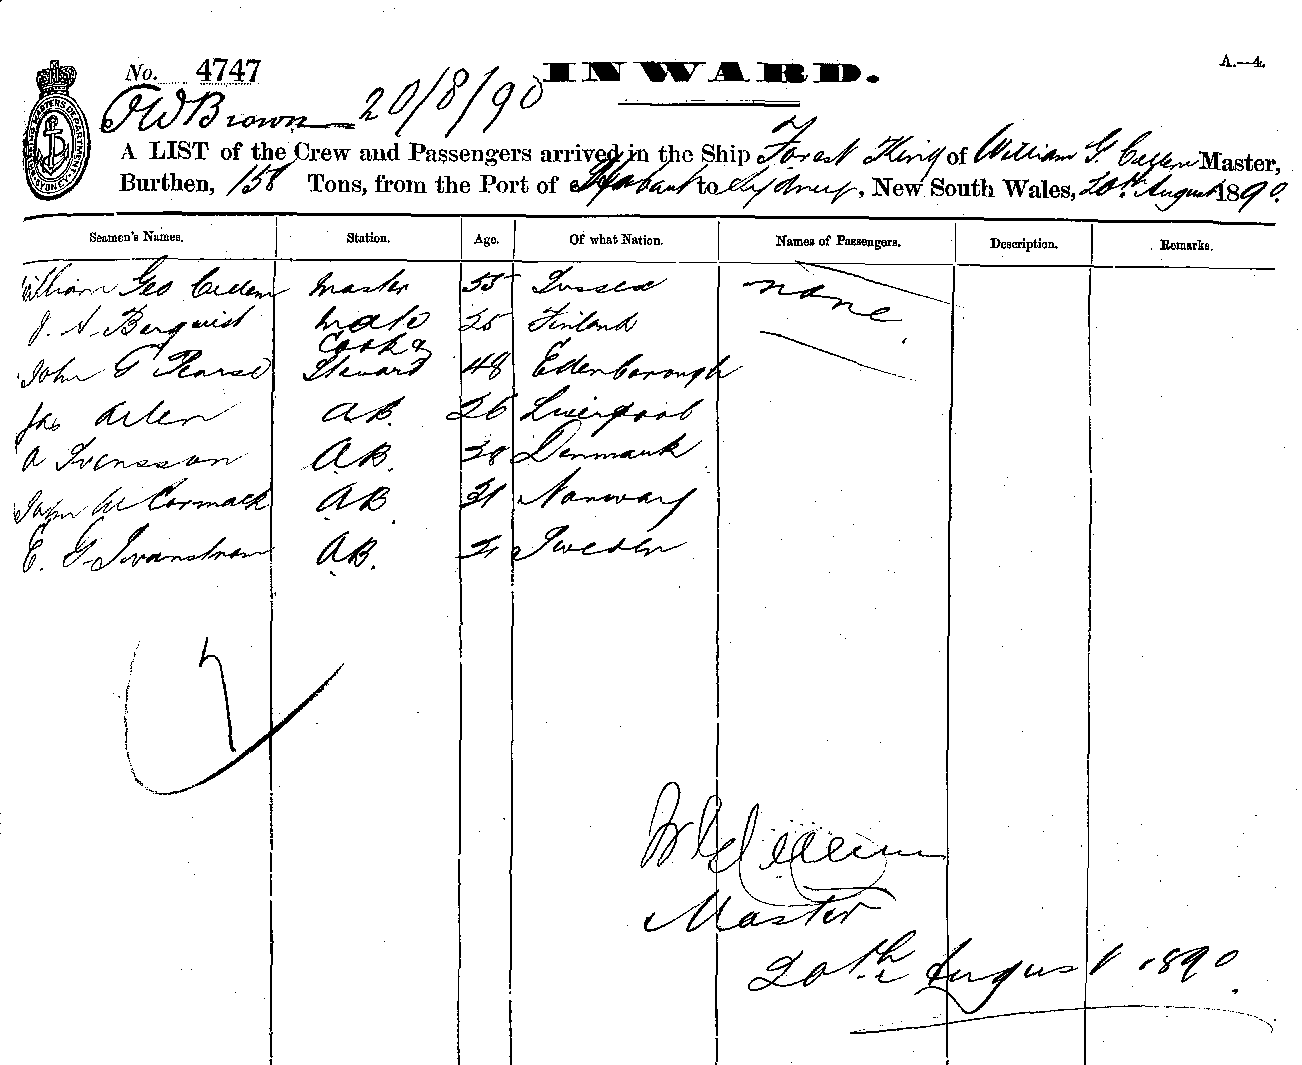 No. 4747
INWARD.
A.—4.
F W Brown 20/8/90
A LIST of the Crew and Passengers arrived in the Ship Forest King of William G. Master,
Burthen, 158 Tons, from the Port of to Sydney, New South Wales, 20th August 1890.
Seamen's Names. Station. Age. Of what Nation. Names of Passengers. Description. Remarks.
William Geo Master 55 Sussex none
J. A Berquist Mate 25 Finland
Cook &
John G Pearse Steward 48 Edenborough
Jas Allen A.B. 26 Liverpool
A Svensson A.B. 28 Denmark
John McCormack A.B. 21 Norway
E. G. Svanstrom A.B. 21 Sweden
7
Master
20th August 1890.